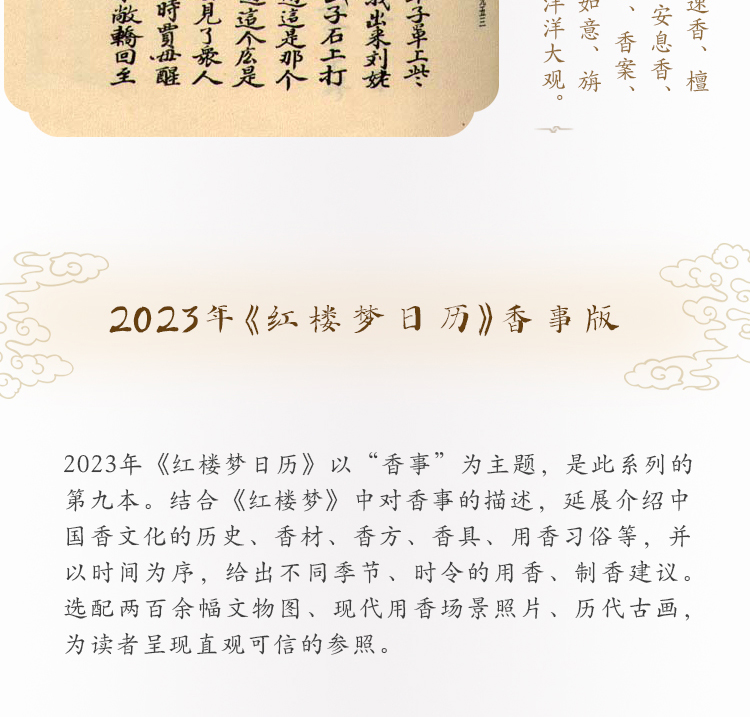 子單上些
出来刘姥
子石上打
這是那个
這个庅是
見了衆人
時賈母醒
敞轎回至
速香、檀
安息香、
、香案、
如意、旃
洋洋大观。
2023年《红楼梦日历》香事版
2023年《红楼梦日历》以“香事”为主题，是此系列的
第九本。结合《红楼梦》中对香事的描述，延展介绍中
国香文化的历史、香材、香方、香具、用香习俗等，并
以时间为序，给出不同季节、时令的用香、制香建议。
选配两百余幅文物图、现代用香场景照片、历代古画，
为读者呈现直观可信的参照。